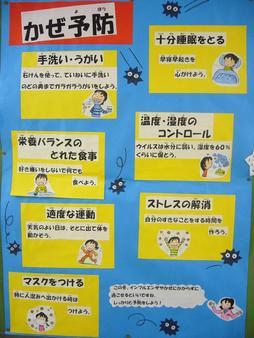 かぜ予防
よ ぼう
手洗い・うがい
石けんを使って、ていねいに手洗い
のどの奥までガラガラうがいをしよう。
十分睡眠をとる
早寝早起きを
心がけよう。
栄養バランスの
とれた食事
好き嫌いをしないで何でも
食べよう。
温度・湿度の
コントロール
ウイルスは水分に弱い、湿度を60%
くらいに保とう。
適度な運動
天気のよい日は、そとに出て体を
動かそう。
ストレスの解消
自分のすきなことをする時間を
作ろう。
マスクをつける
特に人混みへ出かける時は
つけよう。
この冬、インフルエンザやかぜにかからずに
過ごせるといいですね。
しっかりと予防をしよう!